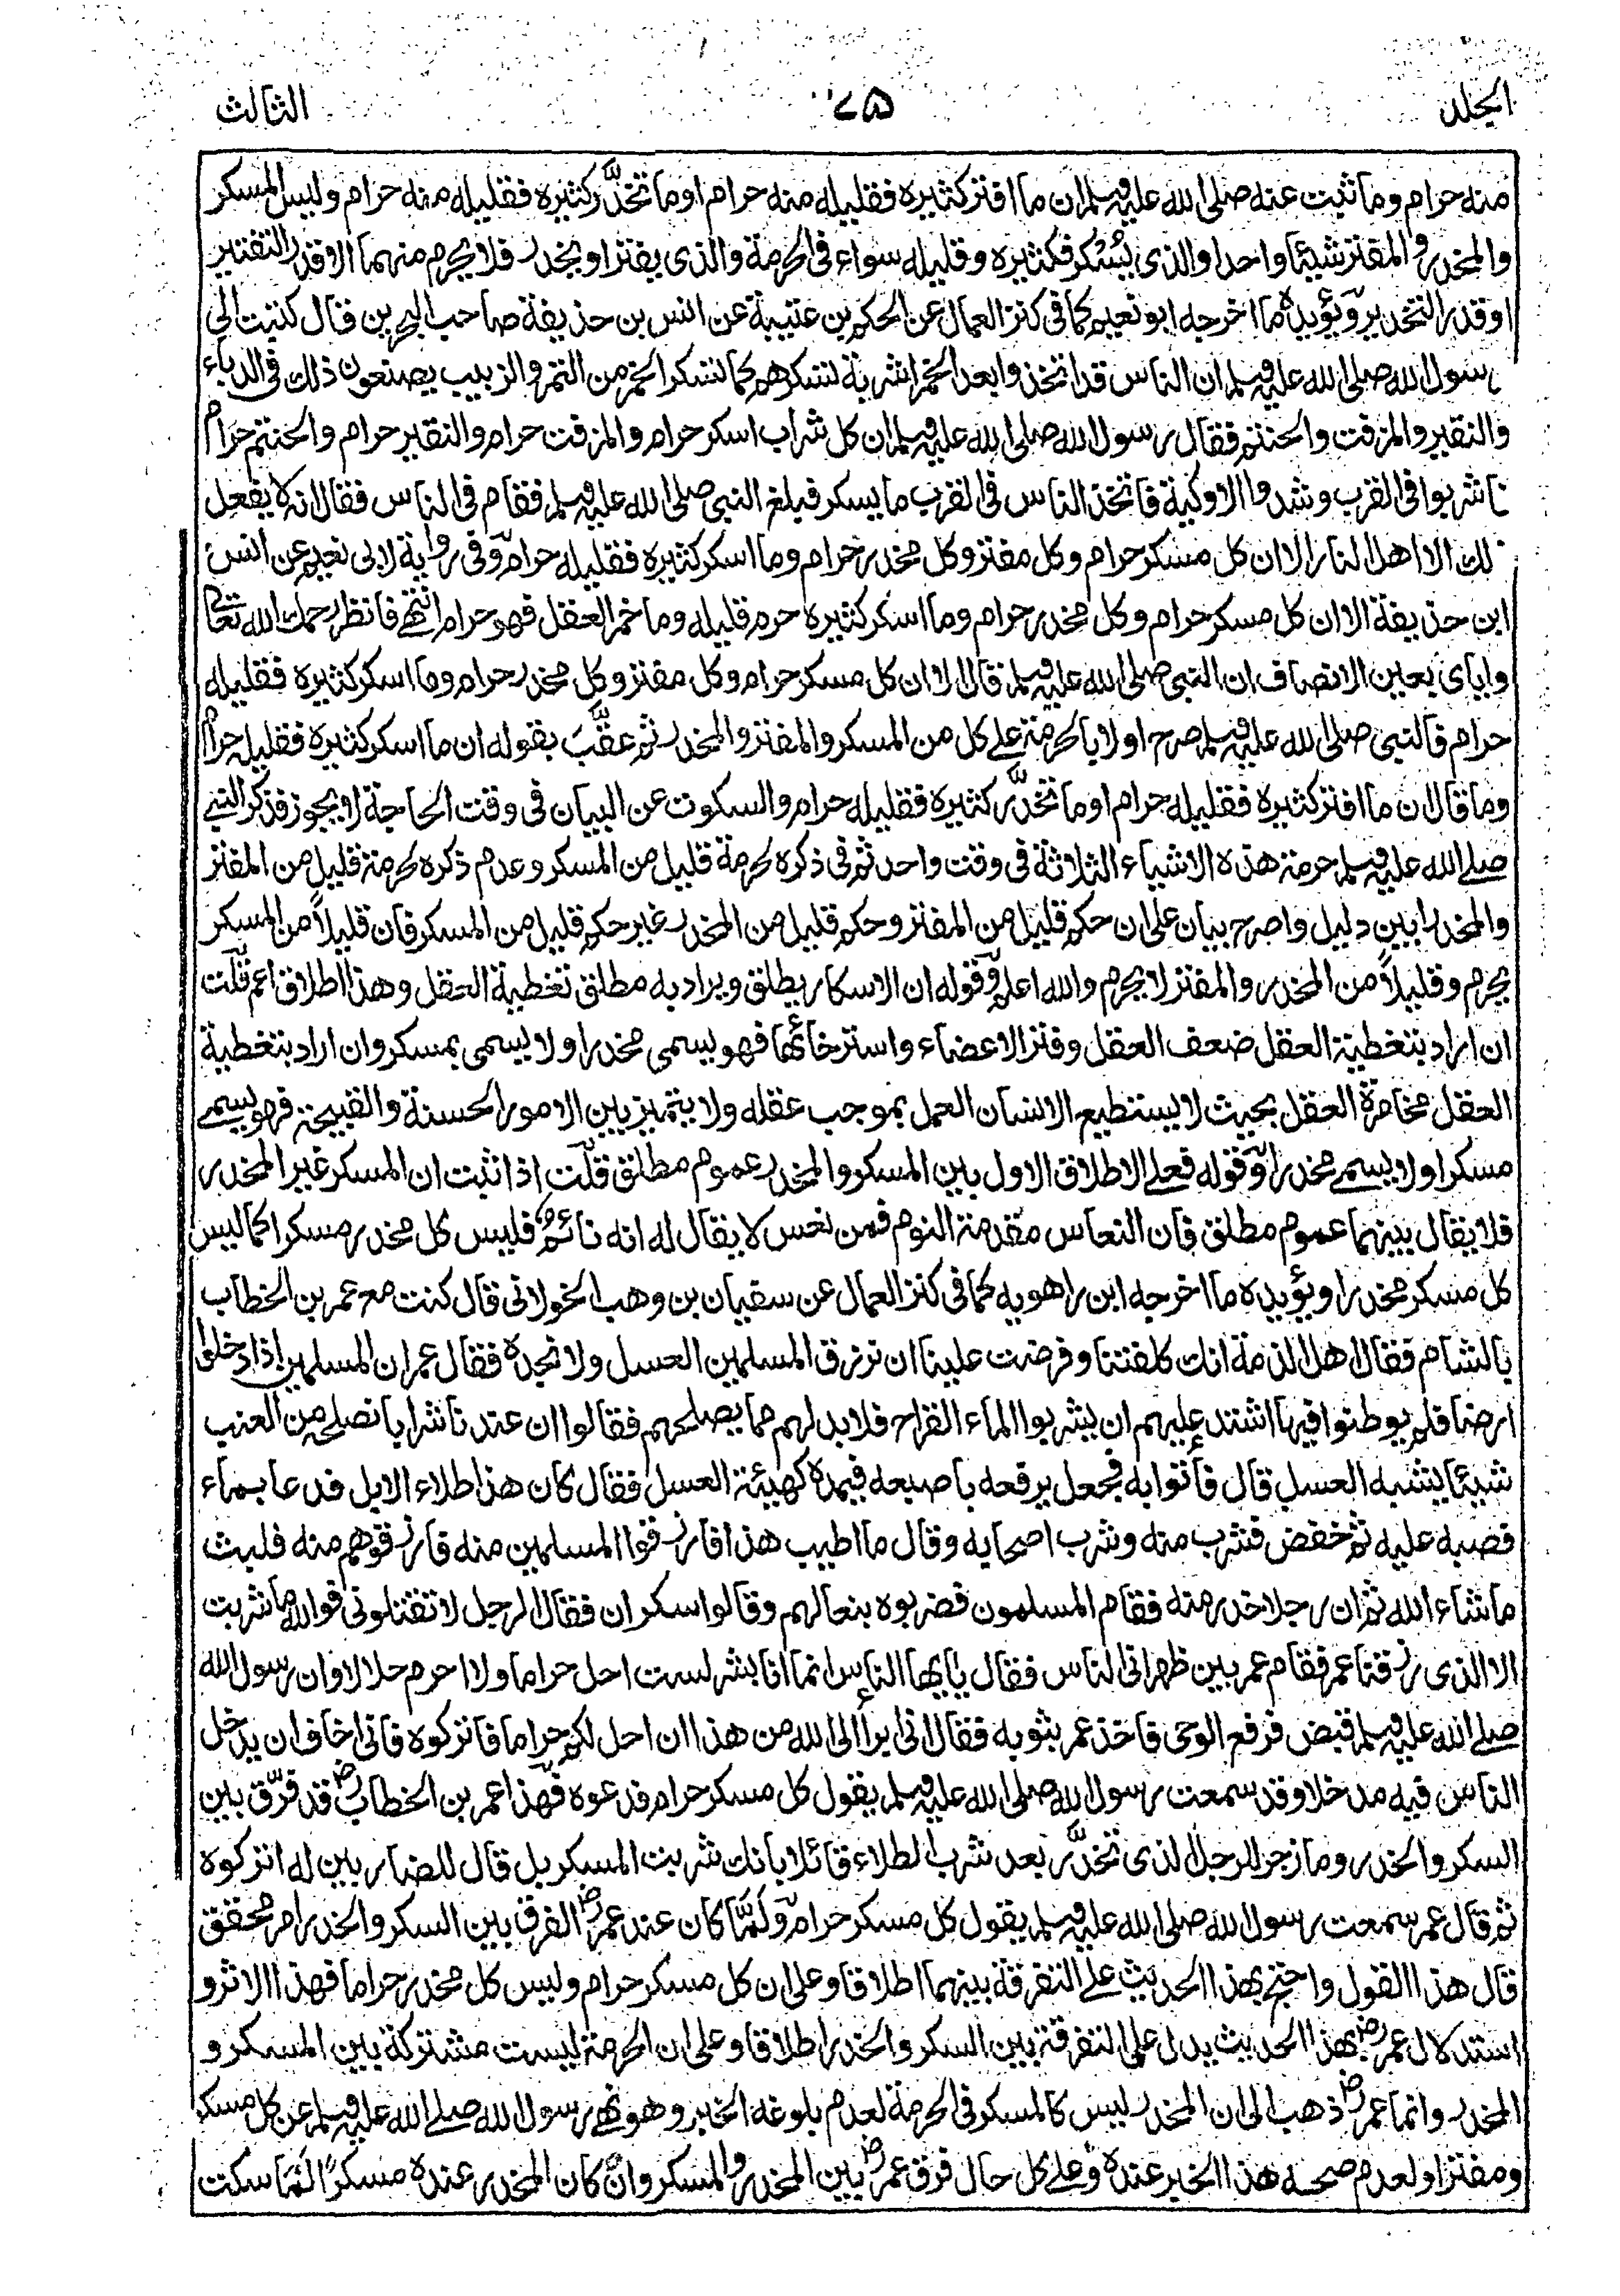 الجلد
الثالث
منه حرام وما ثبت عنه صلى الله عليه وسلم ان ما افتر كثيره فقليله منه حرام او ما تخدّر كثيره فقليله منه حرام وليس المسكر
والمخدر والمفتر شيئا واحدا والذى يُسْكر فكثيره وقليله سواء فى الحرمة والذى يفتر او يخدر فلا يحرم منهما الا قدر التفتير
او قدر التخدير ويؤيده ما اخرجه ابو نعيم كما فى كنز العمال عن الحكم بن عتيبة عن انس بن حذيفة صاحب البحرين قال كتبت الى
رسول الله صلى الله عليه وسلم ان الناس قد اتخذوا بعد الخمر اشربة تسكرهم كما تسكر الخمر من التمر والزبيب يصنعون ذلك فى الدباء
والنقير والمزفت والحنتم فقال رسول الله صلى الله عليه وسلم ان كل شراب اسكر حرام والمزفت حرام والنقير حرام والحنتم حرام
فاشربوا فى القرب وشدوا الاوكية فاتخذ الناس فى القرب ما يسكر فبلغ النبى صلى الله عليه وسلم فقام فى الناس فقال انه لا يفعل
ذلك الا اهل النار الا ان كل مسكر حرام وكل مفتر وكل مخدر حرام وما اسكر كثيره فقليله حرام وفى رواية لابى نعيم عن انس
ابن حذيفة الا ان كل مسكر حرام وكل مخدر حرام وما اسكر كثيره حرم قليله وما خمر العقل فهو حرام انتهى فانظر رحمك الله تعالى
واياى بعين الانصاف ان النبى صلى الله عليه وسلم قال الا ان كل مسكر حرام وكل مفتر وكل مخدر حرام وما اسكر كثيره فقليله
حرام فالنبى صلى الله عليه وسلم صرح اولا بالحرمة على كل من المسكر والمفتر والمخدر ثم عقّبَ بقوله ان ما اسكر كثيره فقليله حرام
وما قال ان ما افتر كثيره فقليله حرام او ما تخدّر كثيره فقليله حرام والسكوت عن البيان فى وقت الحاجة لا يجوز فذكر النبى
صلى الله عليه وسلم حرمة هذه الاشياء الثلاثة فى وقت واحد ثم فى ذكره لحرمة قليل من المسكر وعدم ذكره لحرمة قليل من المفتر
والمخدر ابين دليل واصرح بيان على ان حكم قليل من المفتر وحكم قليل من المخدر غير حكم قليل من المسكر فان قليلاً من المسكر
يحرم وقليلاً من المخدر والمفتر لا يحرم والله اعلم وقوله ان الاسكار يطلق ويراد به مطلق تغطية العقل وهذا اطلاق اعم قلت
ان اراد بتغطية العقل ضعف العقل وفتر الاعضاء واسترخائها فهو يسمى مخدرا ولا يسمى بمسكر وان اراد بتغطية
العقل مخامرة العقل بحيث لا يستطيع الانسان العمل بموجب عقله ولا يتميز بين الامور الحسنة والقبيحة فهو يسمى
مسكرا ولا يسمى مخدرا وقوله فعلى الاطلاق الاول بين المسكر والمخدر عموم مطلق قلت اذا ثبت ان المسكر غير المخدر
فلا يقال بينهما عموم مطلق فان النعاس مقدمة النوم فمن نعس لا يقال له انه نائم فليس كل مخدر مسكرا كما ليس
كل مسكر مخدرا ويؤيده ما اخرجه ابن راهويه كما فى كنز العمال عن سفيان بن وهب الخولانى قال كنت مع عمر بن الخطاب
بالشام فقال اهل الذمة انك كلفتنا وفرضت علينا ان نرزق المسلمين العسل ولا نجده فقال عمر ان المسلمين اذا دخلوا
ارضا فلم يوطنوا فيها اشتد عليهم ان يشربوا الماء القراح فلا بد لهم مما يصلحهم فقالوا ان عندنا شرابا نصلحه من العنب
شيئا يشبه العسل قال فأتوا به فجعل يرفعه باصبعه فيمده كهيئة العسل فقال كان هذا طلاء الابل فدعا بماء
فصبه عليه ثم خفض فشرب منه وشرب اصحابه وقال ما اطيب هذا فارزقوا المسلمين منه فارزقوهم منه فلبث
ما شاء الله ثم ان رجلا خدر منه فقام المسلمون فضربوه بنعالهم وقالوا سكران فقال الرجل لا تقتلونى فوالله ما شربت
الا الذى رزقنا عمر فقام عمر بين ظهرانى الناس فقال يايها الناس انما انا بشر لست احل حراما ولا احرم حلالا وان رسول الله
صلى الله عليه وسلم قبض فرفع الوحى فاخذ عمر بثوبه فقال انى ابرأ الى الله من هذا ان احل لكم حراما فاتركوه فانى اخاف ان يدخل
الناس فيه مدخلا وقد سمعت رسول الله صلى الله عليه وسلم يقول كل مسكر حرام فدعوه فهذا عمر بن الخطاب رض قد فرّق بين
السكر والخدر وما زجر الرجل الذى تخدّر بعد شرب الطلاء قائلا بانك شربت المسكر بل قال للضاربين له اتركوه
ثم قال عمر سمعت رسول الله صلى الله عليه وسلم يقول كل مسكر حرام ولَمَّا كان عند عمر رض الفرق بين السكر والخدر امر محقق
قال هذا القول واحتج بهذا الحديث على التفرقة بينهما اطلاقا وعلى ان كل مسكر حرام وليس كل مخدر حراما فهذا الاثر و
استدلال عمر رض بهذا الحديث يدل على التفرقة بين السكر والخدر اطلاقا وعلى ان الحرمة ليست مشتركة بين المسكر و
المخدر وانما عمر رض ذهب الى ان المخدر ليس كالمسكر فى الحرمة لعدم بلوغه الخبر وهو نهى رسول الله صلى الله عليه وسلم عن كل مسكر
ومفتر او لعدم صحة هذا الخبر عنده وعلى كل حال فرق عمر رض بين المخدر والمسكر وان كان المخدر عنده مسكرًا لَمَا سكت